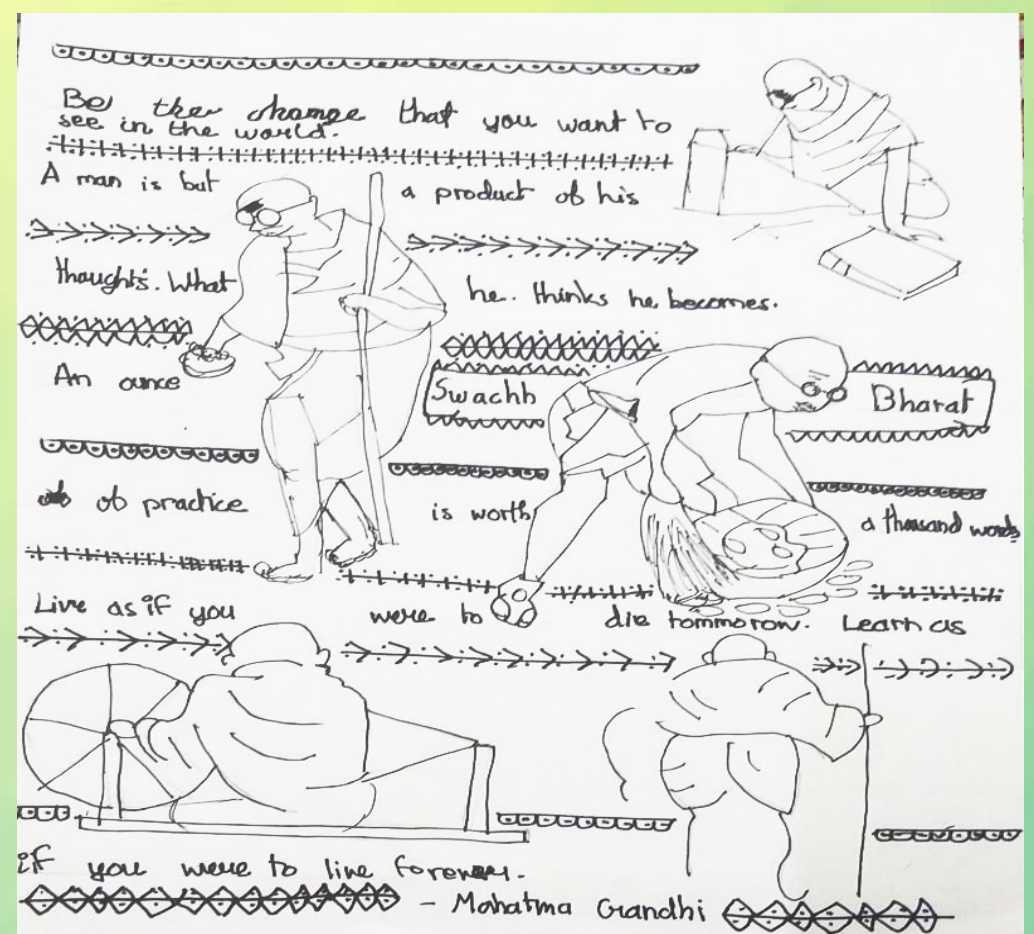 Be the change that you want to
see in the world.
A man is but a product of his
thoughts. What he. thinks he becomes.
An ounce
Swachh Bharat
of practice is worth a thousand words
Live as if you were to die tommorow. Learn as
if you were to live forever.
- Mahatma Gandhi